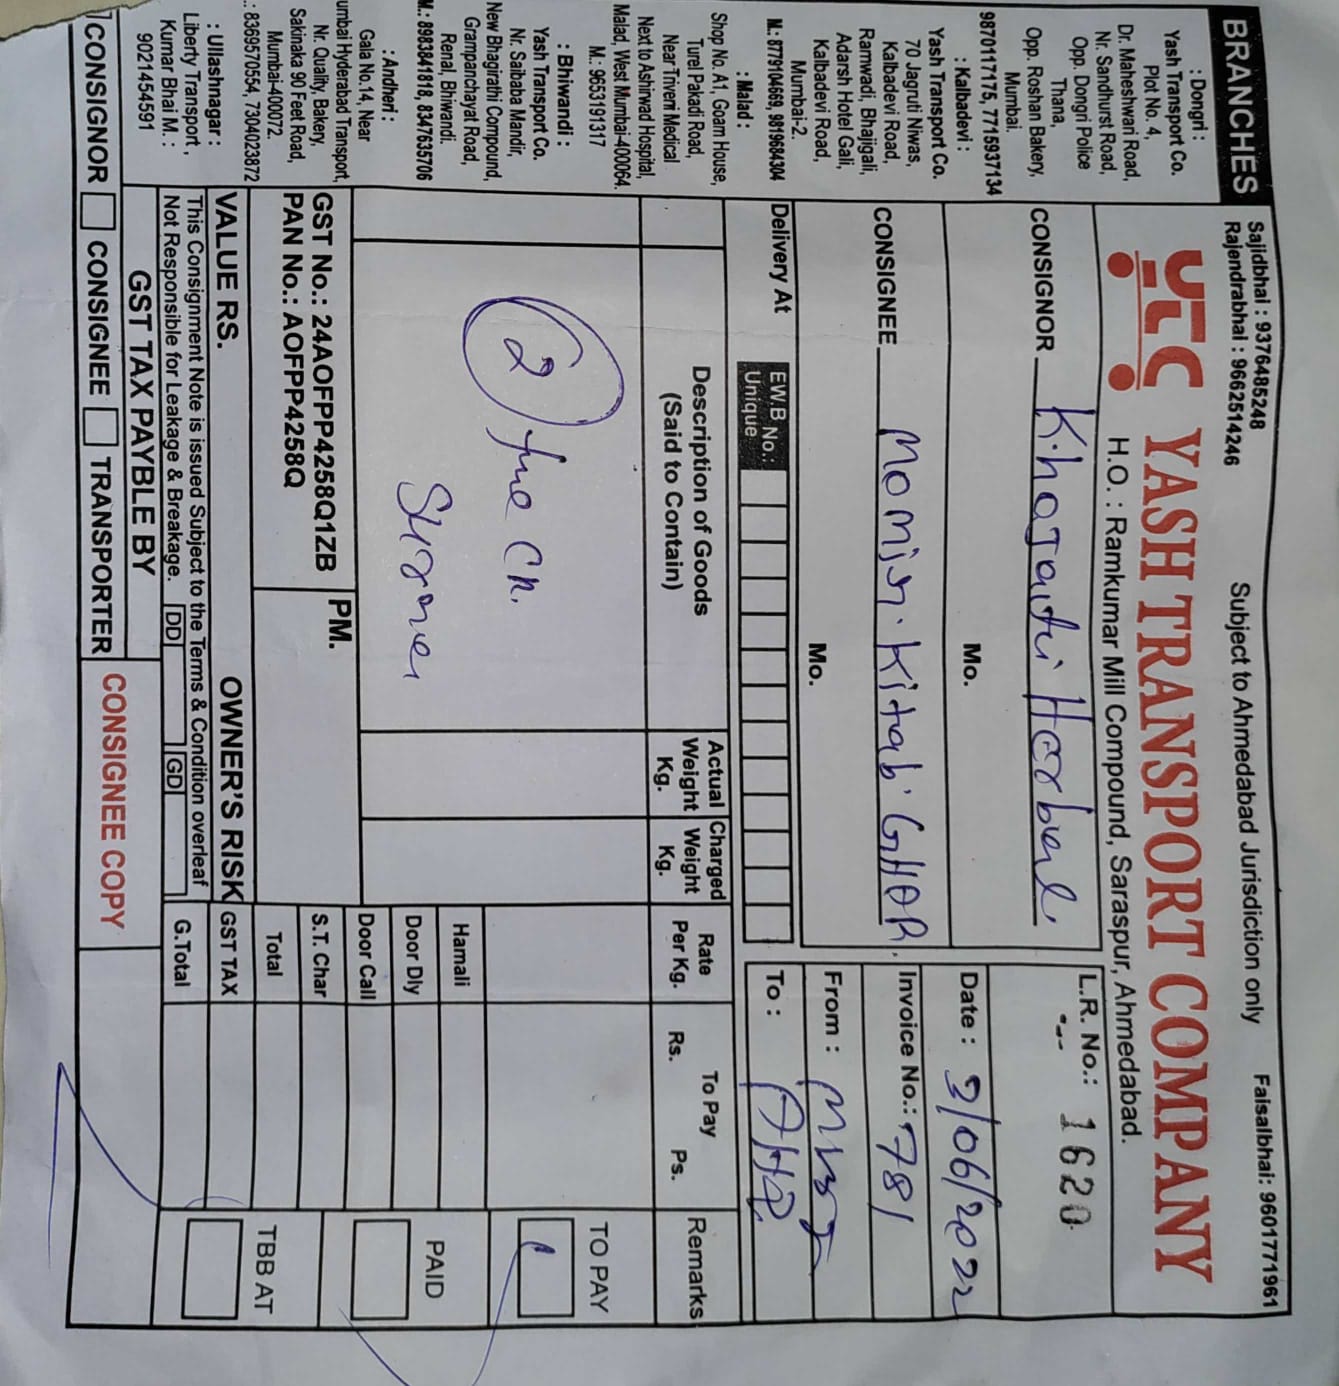 BRANCHES
: Dongri :
Yash Transport Co.
Plot No. 4,
Dr. Maheshwari Road,
Nr. Sandhurst Road,
Opp. Dongri Police
Thana,
Opp. Roshan Bakery,
Mumbai.
9870117175, 7715937134
: Kalbadevi :
Yash Transport Co.
70 Jagruti Niwas,
Kalbadevi Road,
Ramwadi, Bhajigali,
Adarsh Hotel Gali,
Kalbadevi Road,
Mumbai-2.
M.: 8779104669, 9819684304
: Malad :
Shop No. A1, Goam House,
Turel Pakadi Road,
Near Triveni Medical
Next to Ashirwad Hospital,
Malad, West Mumbai-400064.
M.: 9653191317
: Bhiwandi :
Yash Transport Co.
Nr. Saibaba Mandir,
New Bhagirathi Compound,
Grampanchayat Road,
Renal, Bhiwandi.
M.: 8983841818, 8347635706
: Andheri :
Gala No.14, Near
umbai Hyderabad Transport,
Nr. Quality, Bakery,
Sakinaka 90 Feet Road,
Mumbai-400072.
.: 8369570554, 7304023872
: Ullashnagar :
Liberty Transport,
Kumar Bhai M. :
9021454591
Sajidbhai : 9376485248
Rajendrabhai : 9662514246
Subject to Ahmedabad Jurisdiction only
Faisalbhai: 9601771961
YTC YASH TRANSPORT COMPANY
H.O. : Ramkumar Mill Compound, Saraspur, Ahmedabad.
CONSIGNOR Khajati Herbal
Mo.
L.R. No.: 1620
Date : 3/06/2022
CONSIGNEE Momin Kitab GHAR.
Mo.
Invoice No.: 781
From :
To : AHD
Delivery At
EW.B No.:
Unique
Description of Goods
(Said to Contain)
Actual
Weight
Kg.
Charged
Weight
Kg.
Rate
Per Kg.
To Pay
Rs. Ps.
Remarks
2
TO PAY
PAID
TBB AT
Hamali
Door Dly
Door Call
S.T. Char
Total
GST TAX
G.Total
GST No.: 24AOFPP4258Q1ZB
PAN No.: AOFPP4258Q
PM.
VALUE RS.
OWNER'S RISK
This Consignment Note is issued Subject to the Terms & Condition overleaf
Not Responsible for Leakage & Breakage. DD GD
GST TAX PAYBLE BY
CONSIGNOR CONSIGNEE TRANSPORTER
CONSIGNEE COPY